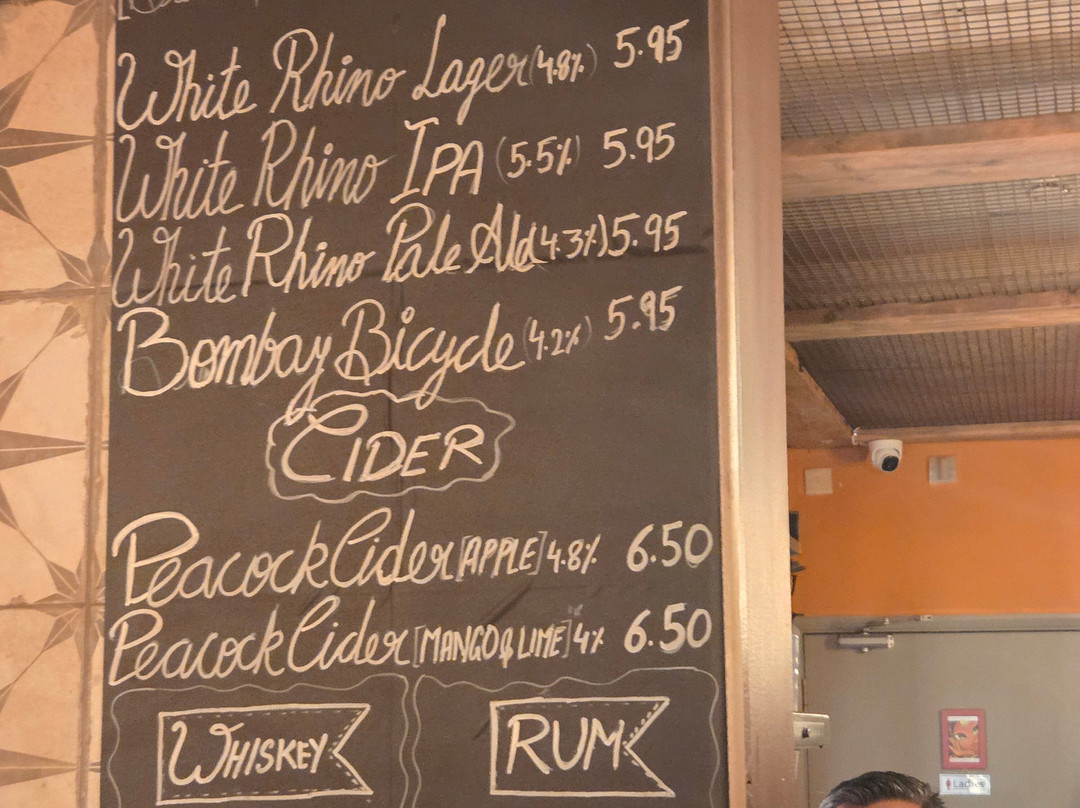 White Rhino Lager (4.8%) 5.95
White Rhino IPA (5.5%) 5.95
White Rhino Pale Ale (4.3%) 5.95
Bombay Bicycle (4.2%) 5.95
CIDER
Peacock Cider [APPLE] 4.8% 6.50
Peacock Cider [MANGO & LIME] 4% 6.50
WHISKEY
RUM
Ladies